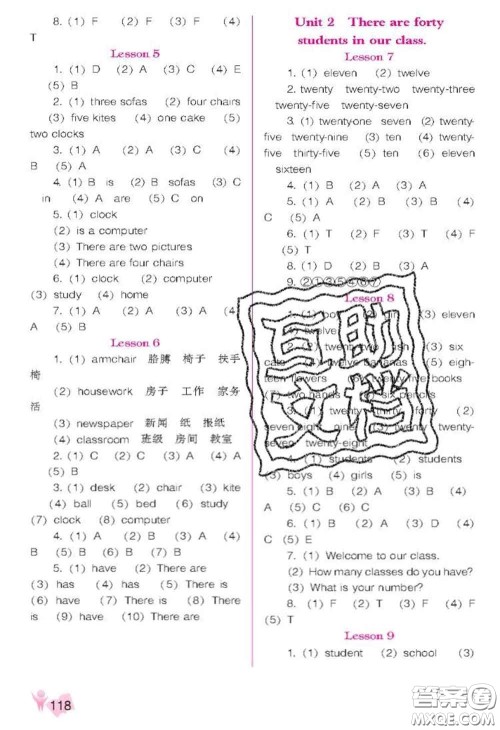 8. (1) F (2) F (3) F (4)
T
Lesson 5
1. (1) D (2) A (3) C (4) E
(5) B
2. (1) three sofas (2) four chairs
(3) five kites (4) one cake (5)
two clocks
3. (1) A (2) A (3) C (4)
B (5) A
4. (1) B is (2) B sofas (3) C
in (4) A are (5) C on
5. (1) clock
(2) is a computer
(3) There are two pictures
(4) There are four chairs
6. (1) clock (2) computer
(3) study (4) home
7. (1) T (2) F (3) T (4)
F (5) T
Lesson 6
1. (1) amchair 胳膊 椅子 扶手
椅
(2) housework 房子 工作 家务
活
(3) newspaper 新闻 纸 报纸
(4) classroom 班级 房间 教室
2. (1) C (2) C (3) B (4) A
(5) B
3. (1) desk (2) chair (3) kite
(4) ball (5) bed (6) study
(7) clock (8) computer
4. (1) A (2) B (3) A (4)
A (5) B (6) B (7) B
5. (1) have (2) There are
(3) has (4) has (5) There is
(6) have (7) There is (8) There
is (9) have (10) There are
118
Unit 2 There are forty
students in our class.
Lesson 7
1. (1) eleven (2) twelve
2. twenty twenty-two twenty-three
twenty-five twenty-seven
3. (1) twentyone seven (2) twenty-
five twenty-nine (3) ten (4) twenty-
five thirty-five (5) ten (6) eleven
sixteen
4. (1) B (2) A (3) A
5. (1) A (2) B (3) B (4)
C (5) A
6. (1) T (2) F (3) T (4) F
(5) T
8. (1) D (2) B (3) A
9. ②①③⑤④⑥⑦
Lesson 8
1. (1) (2) girl (3) eleven
(4) twelve
2. (1) (2) six
(4) twelve bananas (5) eigh-
teen flowers (6) twenty-five books
(7) two hands (8) six pencils
3. (1) twenty thirty forty (2)
seven eight nine (3) twenty-
seven twenty-eight
4. (1) students (2) students
(3) boys (4) girls (5) is
5. (1) B (2) B (3) A (4)
A (5) C
6. (1) D (2) B (3) A (4)
C (5) E
7. (1) Welcome to our class.
(2) How many classes do you have?
(3) What is your number?
8. (1) F (2) T (3) F (4) F
(5) T
Lesson 9
1. (1) student (2) school (3)
互助文档
答案圈
MXQE.COM